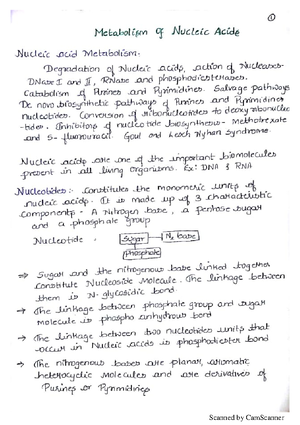 1
Metabolism of Nucleic Acids
Nucleic acid Metabolism.
Degradation of Nucleic acids, action of Nucleases-
DNase I and II, RNase and phosphodiesterases.
Catabolism of Purines and Pyrimidines. Salvage pathways
De novo biosynthetic pathways of Purines and Pyrimidines
nucleotides. Conversion of ribonucleotides to deoxyribonucleo
-tides. Inhibitors of nucleotide biosynthesis- Methotrexate
and 5- fluorouracil. Gout and Lesch Nyhan Syndrome
Nucleic acids are one of the important biomolecules
present in all living organisms. Ex: DNA & RNA
Nucleotides:- Constitutes the monomeric units of
nucleic acids. It is made up of 3 characteristic
components - A Nitrogen base, a pentose sugar
and a phosphate group
Nucleotide: Sugar N2 base
Phosphate
⇒ Sugar and the nitrogenous base linked together
constitute Nucleoside molecule. The linkage between
them is N- glycosidic bond.
⇒ The linkage between phosphate group and sugar
molecule is phospho anhydrous bond
⇒ The linkage between two nucleotides units that
occur in Nucleic acids is phosphodiester bond
⇒ The nitrogenous bases are planar, aromatic
heterocyclic molecules and are derivatives of
Purines or Pyrimidines
Scanned by CamScanner